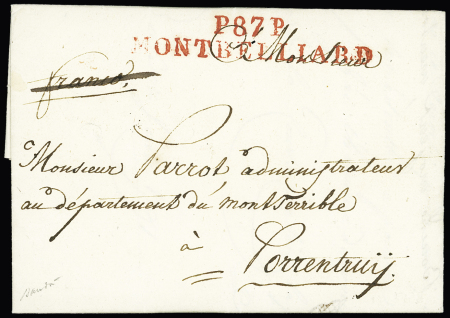 P87P
MONTBEILLIARD
A Monsieur
franco,
Monsieur Parrot administrateur
au département du mont Terrible
à
Porrentruij.